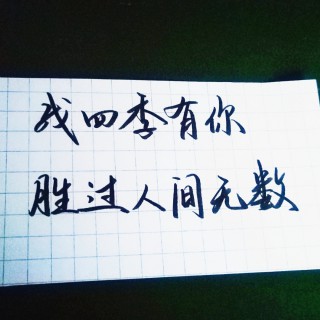 我四季有你
胜过人间无数